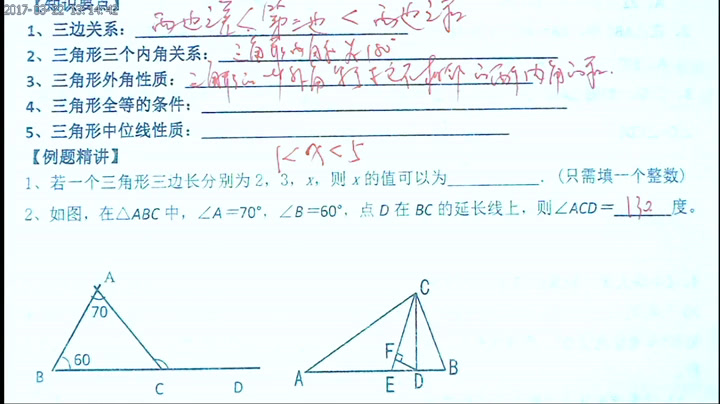 【知识要点】
2017-03-22 13:14:42
1、三边关系：两边之差<第三边<两边之和
2、三角形三个内角关系：三角形内角和为180°
3、三角形外角性质：三角形的一个外角等于与它不相邻的两个内角的和.
4、三角形全等的条件：
5、三角形中位线性质：
【例题精讲】
1<x<5
1、若一个三角形三边长分别为2，3，x，则x的值可以为________．(只需填一个整数)
2、如图，在△ABC中，∠A＝70°，∠B＝60°，点D在BC的延长线上，则∠ACD＝130度。
A
70
60
B
C
D
C
F
A
E
D
B